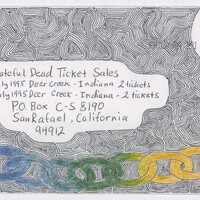 ateful Dead Ticket Sales
ly 1995 Deer Creek - Indiana 2 tickets
ly 1995 Deer Creek - Indiana - 2 tickets
P.O Box C-S 8190
San Rafael, California
94912